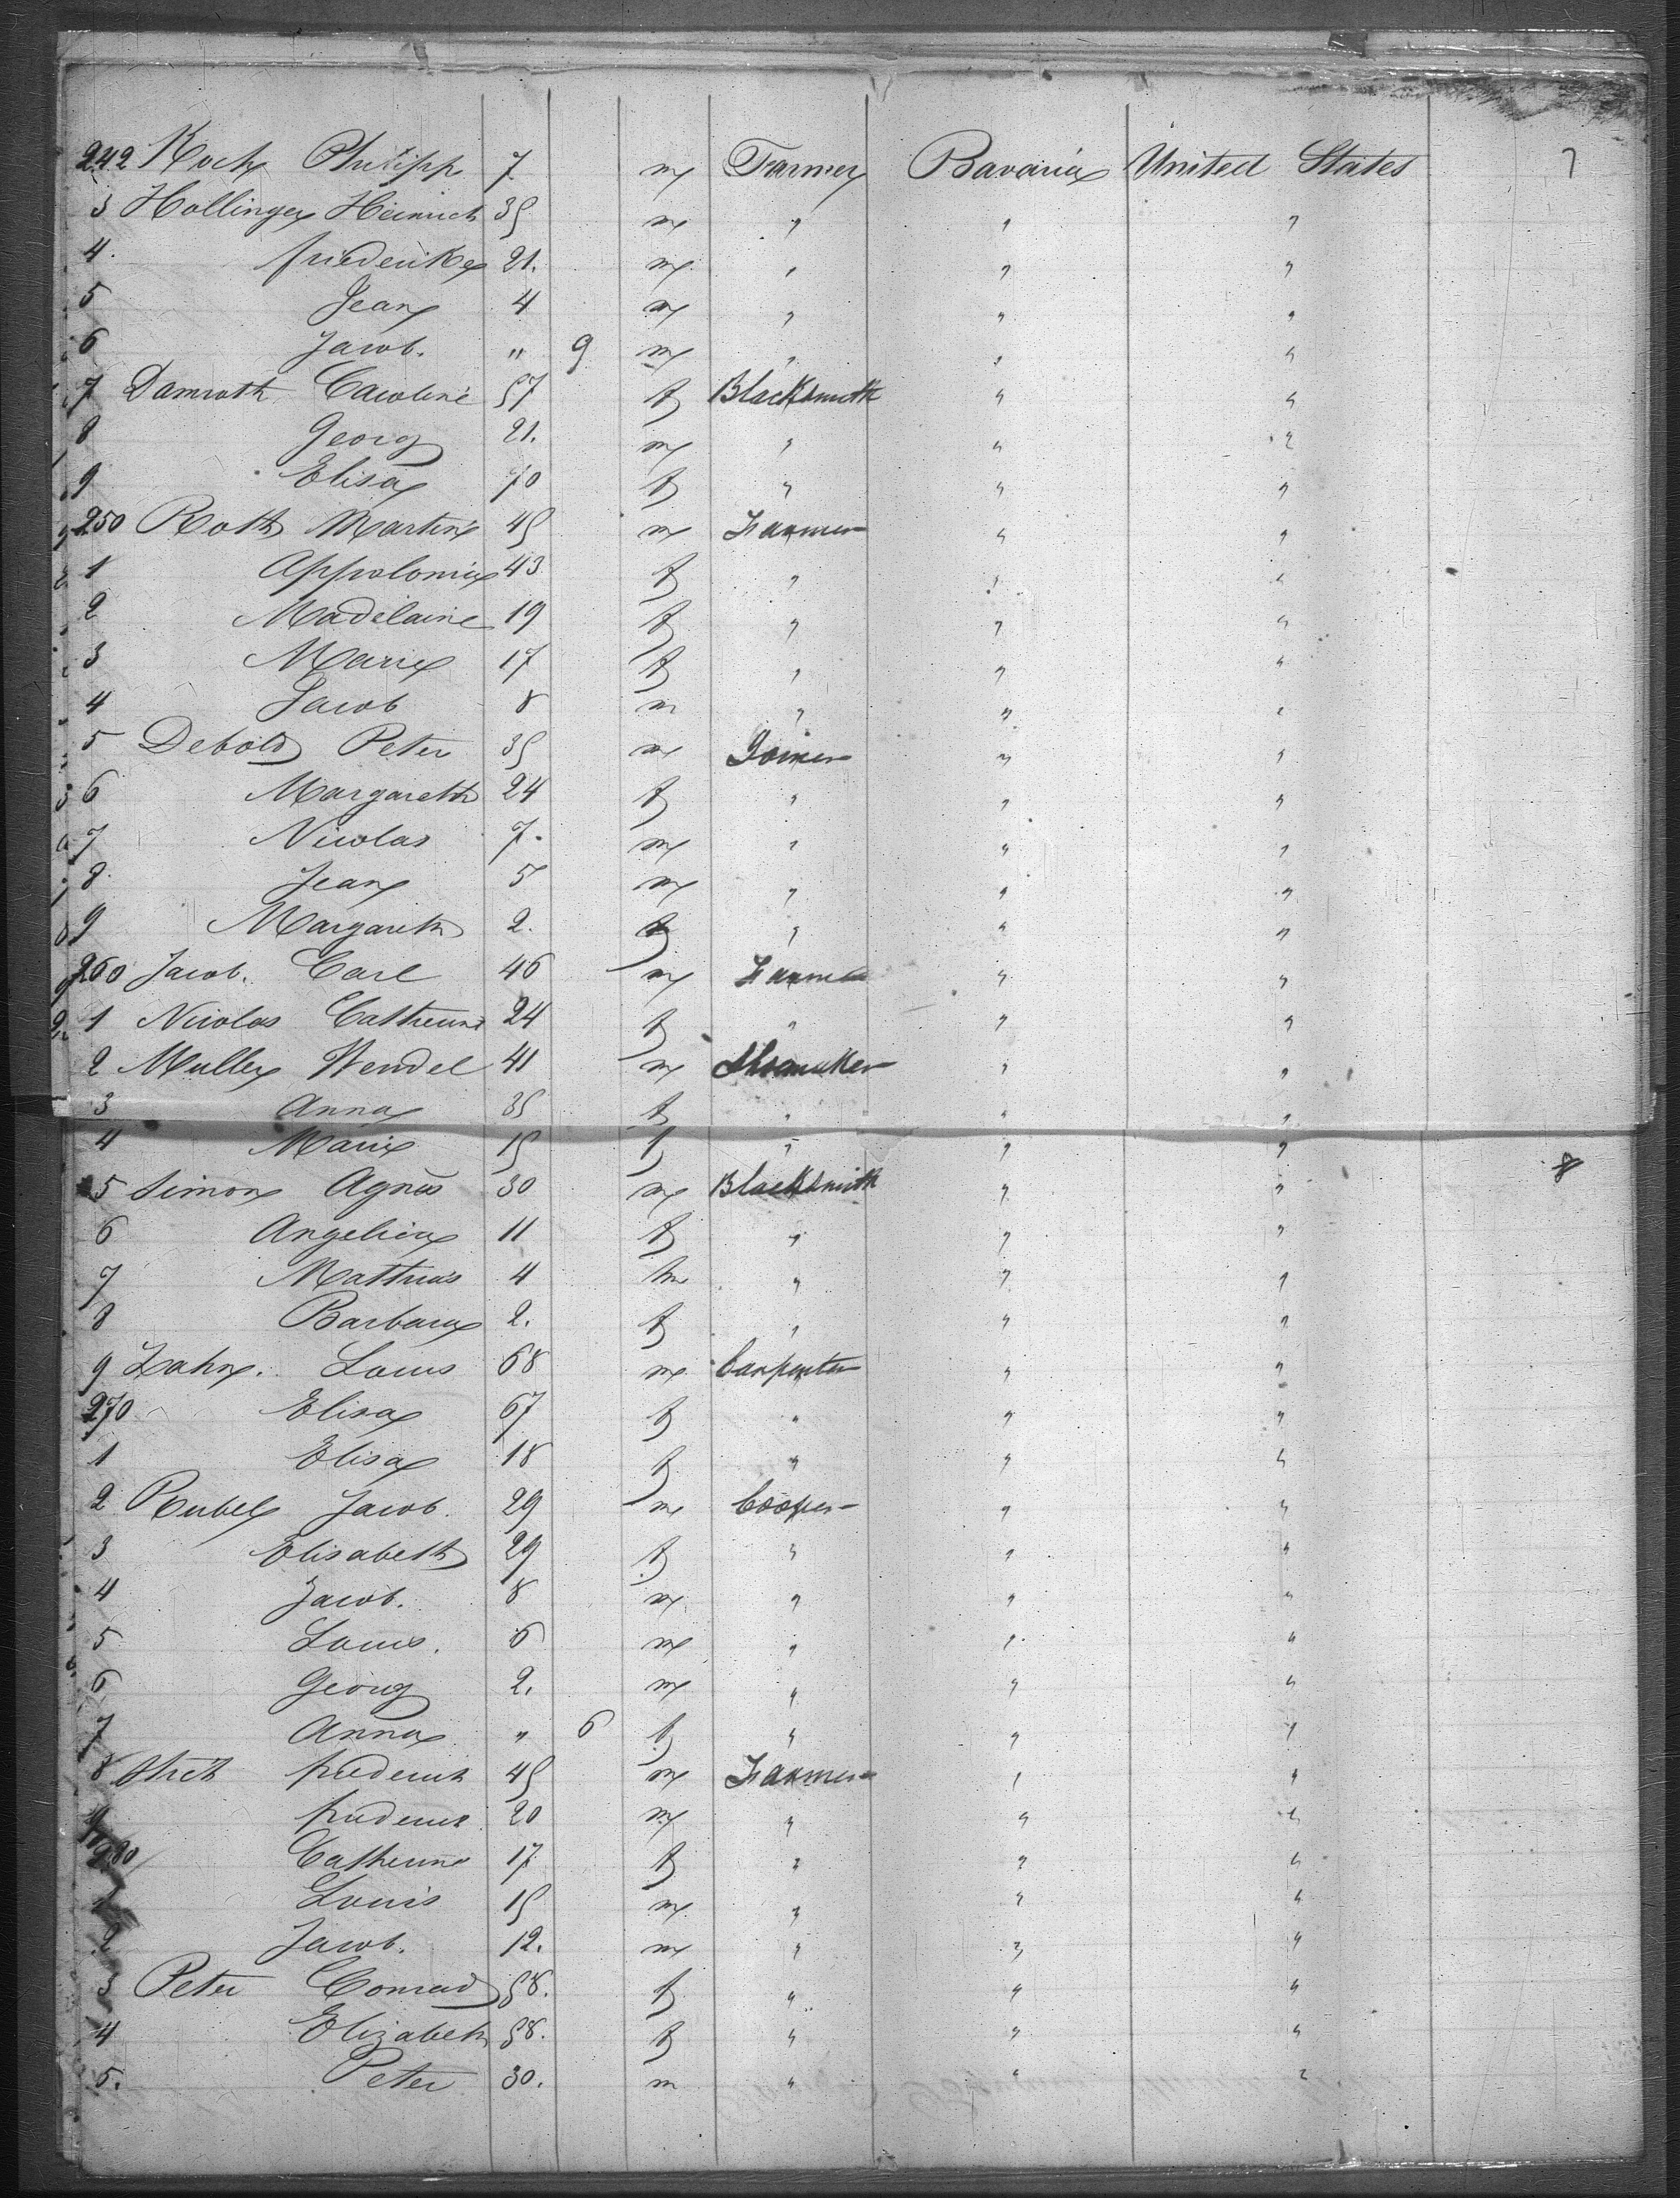 242 Koch Philipp 7 m Farmer Bavaria United States 7
3 Hollinger Heinrich 35 m " " "
4. Friederike 21. m " " "
5 Jean 4 m " " "
6 Jacob. " 9 m " " "
7 Damroth Caroline 57 f Blacksmith " "
8 Georg 21. m " " "
9 Elisa 70 f " " "
250 Roth Martin 45 m Farmer " "
1 Appolonia 43 f " " "
2 Madelaine 19 f " " "
3 Marie 17 f " " "
4 Jacob 8 m " " "
5 Debold Peter 35 m Joiner " "
6 Margareth 24 f " " "
7 Nicolas 7. m " " "
8 Jean 5 m " " "
9 Margareth 2. f " " "
260 Jacob. Carl 46 m Farmer " "
1 Nicolas Catherine 24 f " " "
2 Muller Wendel 41 m Shomaker " "
3 Anna 35 f " " "
4 Marie 15 f " " "
5 Simon Agnes 30 m Blacksmith " " 8
6 Angelica 11 f " " "
7 Mathias 4 m " " "
8 Barbara 2. f " " "
9 Zahn. Louis 68 m Carpenter " "
270 Elisa 67 f " " "
1 Elisa 18 f " " "
2 Rubel Jacob. 29 m Cooper " "
3 Elisabeth 29 f " " "
4 Jacob. 8 m " " "
5 Louis. 6 m " " "
6 Georg 2. m " " "
7 Anna " 6 f " " "
8 Frederick 45 m Farmer " "
9 Frederick 20 m " " "
280 Catherine 17 f " " "
1 Louis 15 m " " "
2 Jacob. 12. m " " "
3 Peter Conrad 58. f " " "
4 Elizabeth 58. f " " "
5. Peter 30. m " " "